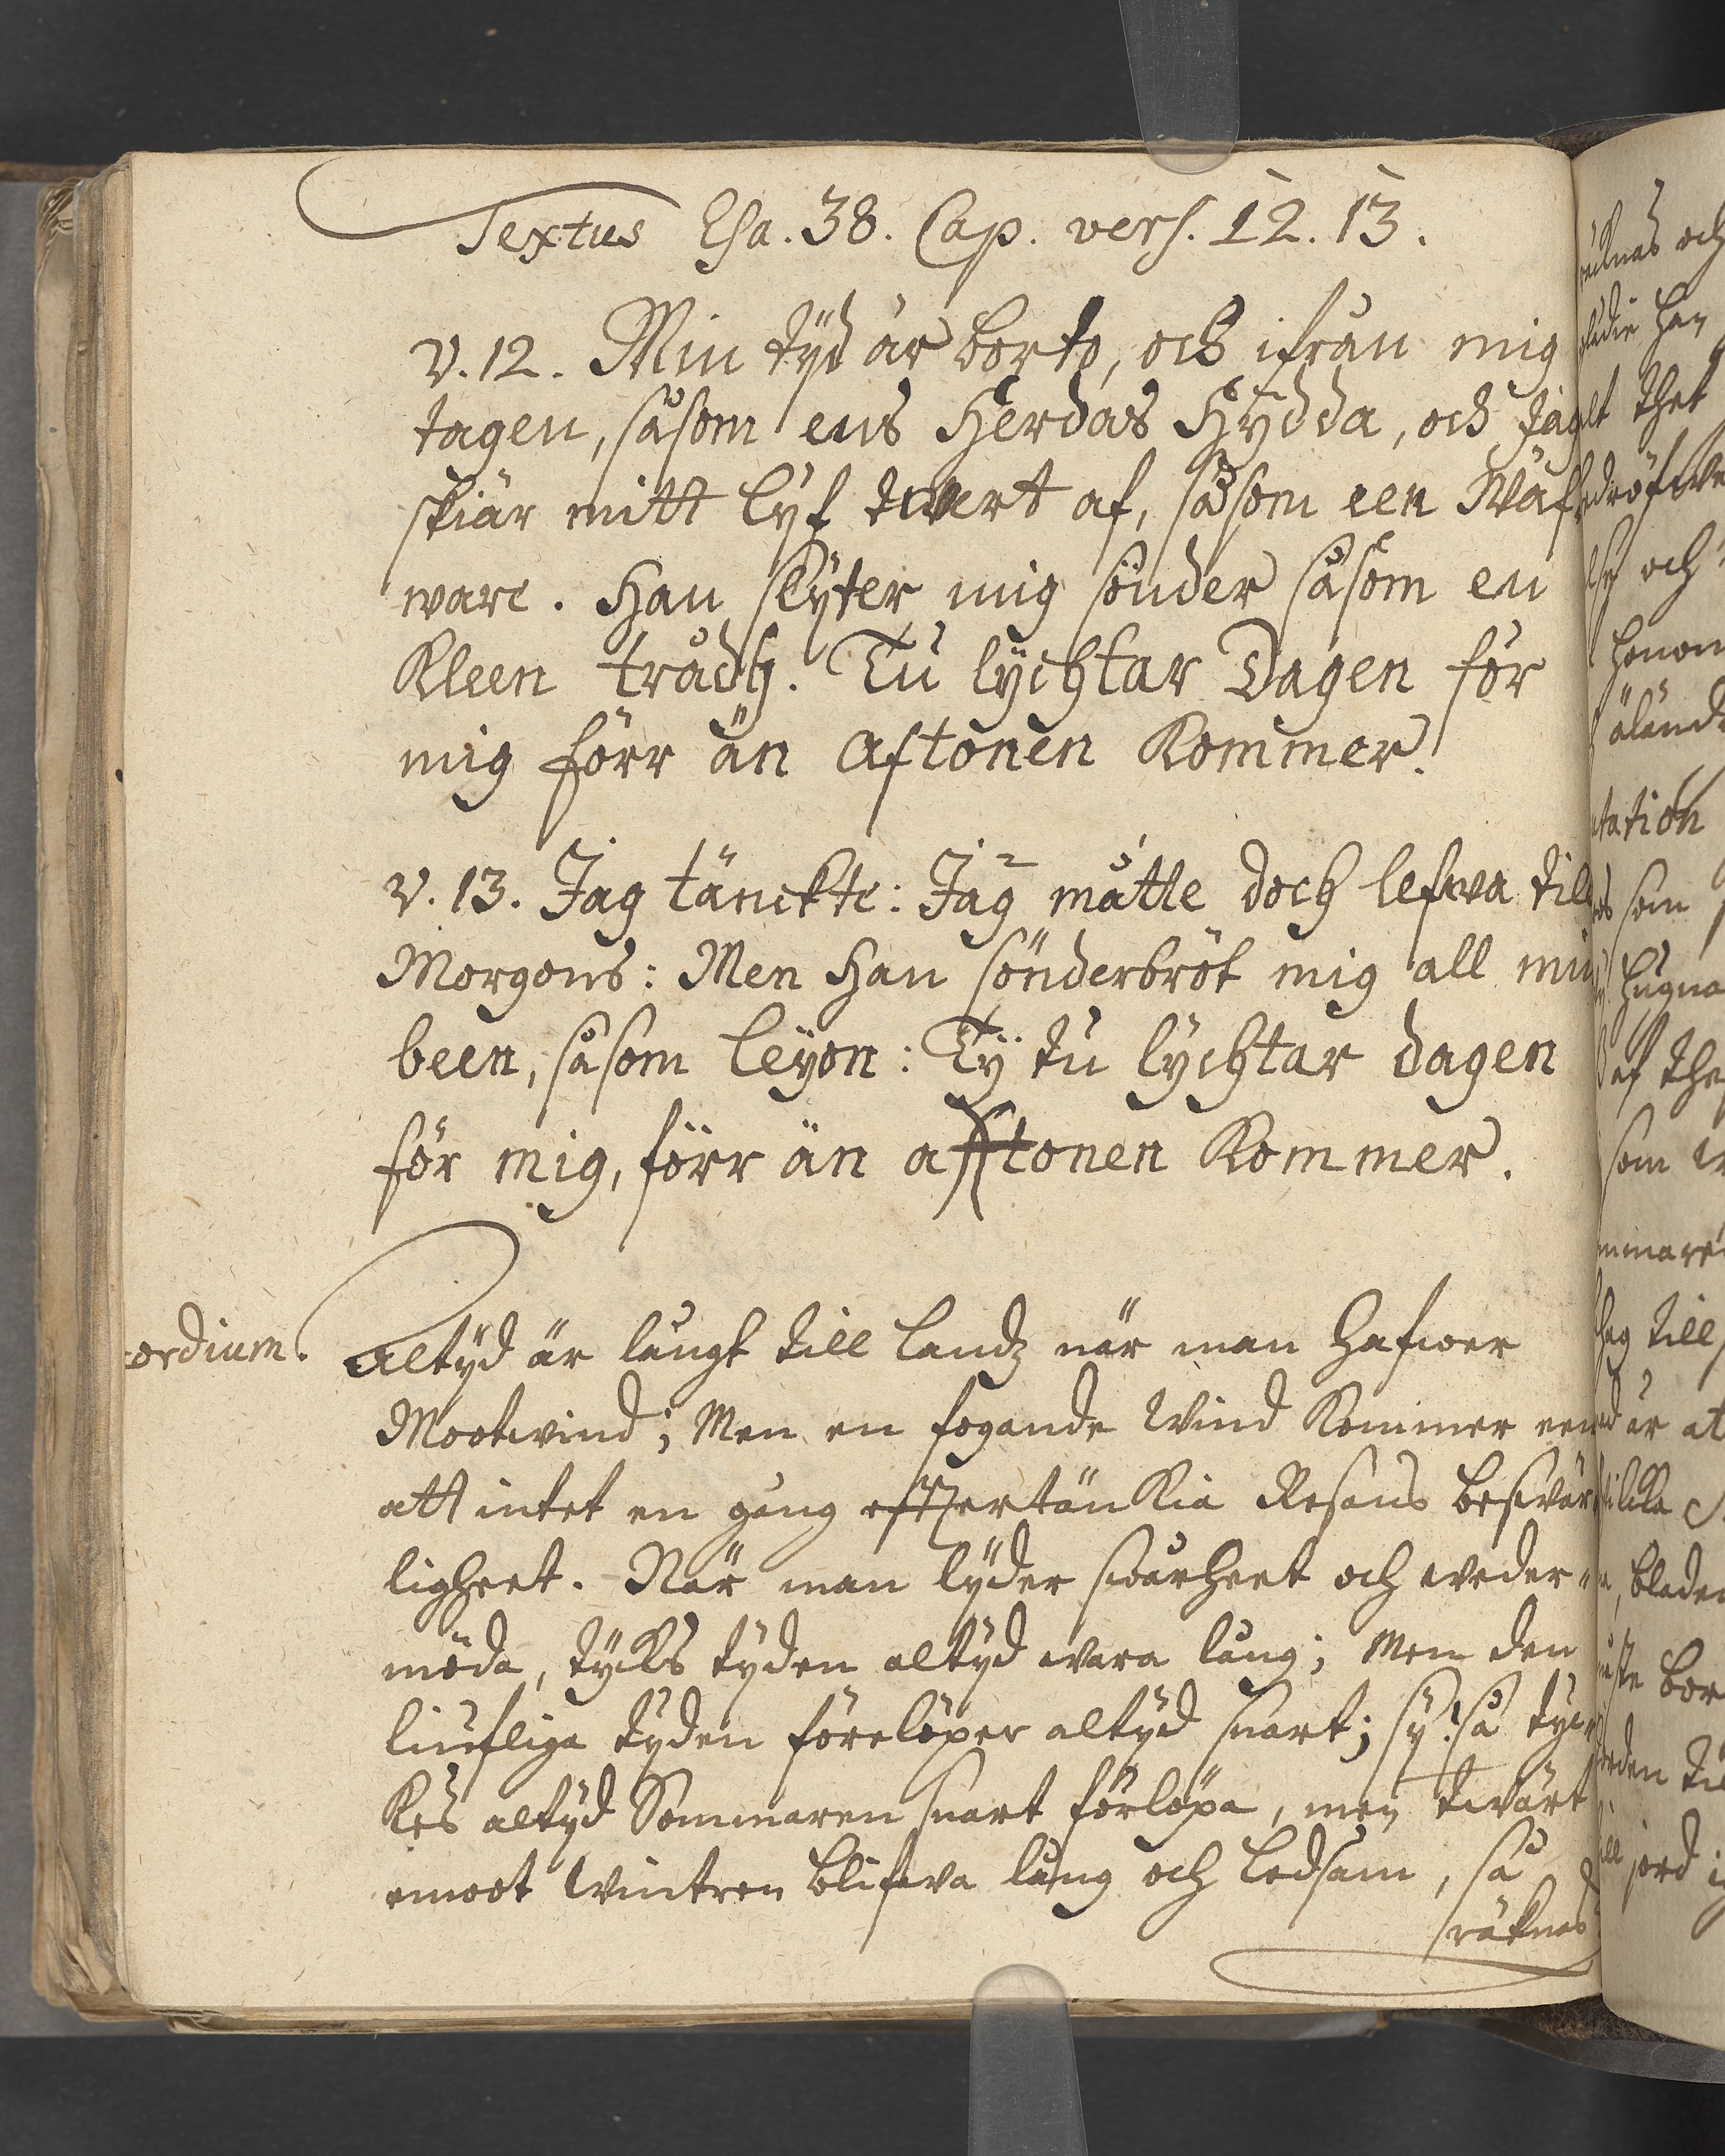 Textus Esa. 38. Cap. vers. 12. 13.
V. 12. Min tÿd är borto, och ifrån mig
tagen, såsom ens Herdas Hÿdda, och jag
skiär mitt lÿf twert af, såsom een Wäf
ware. Han slÿter mig sönder såsom en
Kleen trådh. Tu lÿchtar Dagen för
mig förr än Aftonen Kommer.
v. 13. Jag tänckte: Jag måtte doch lefwa till
Morgons: Men Han sönderbröt mig all min
been, såsom Leÿon: Tÿ tu lÿchtar dagen
för mig, förr än afftonen Kommer.
ordium.
Altÿd är långt till Landz när man hafwer
Mootwind; Men en fogande Wind Kommer een
att intet en gång efftertänkia Resans beswär
ligheet. När man lÿder swårheet och weder-
möda, tÿcks tÿden altÿd wara lång; Men den
liufliga tÿden förelöper altÿd snart; sÿ! så tÿc
Kes altÿd Sommaren snart förlöpa, men twärt
emoot Wintren blifwa lång och Ledsam, så
räknas